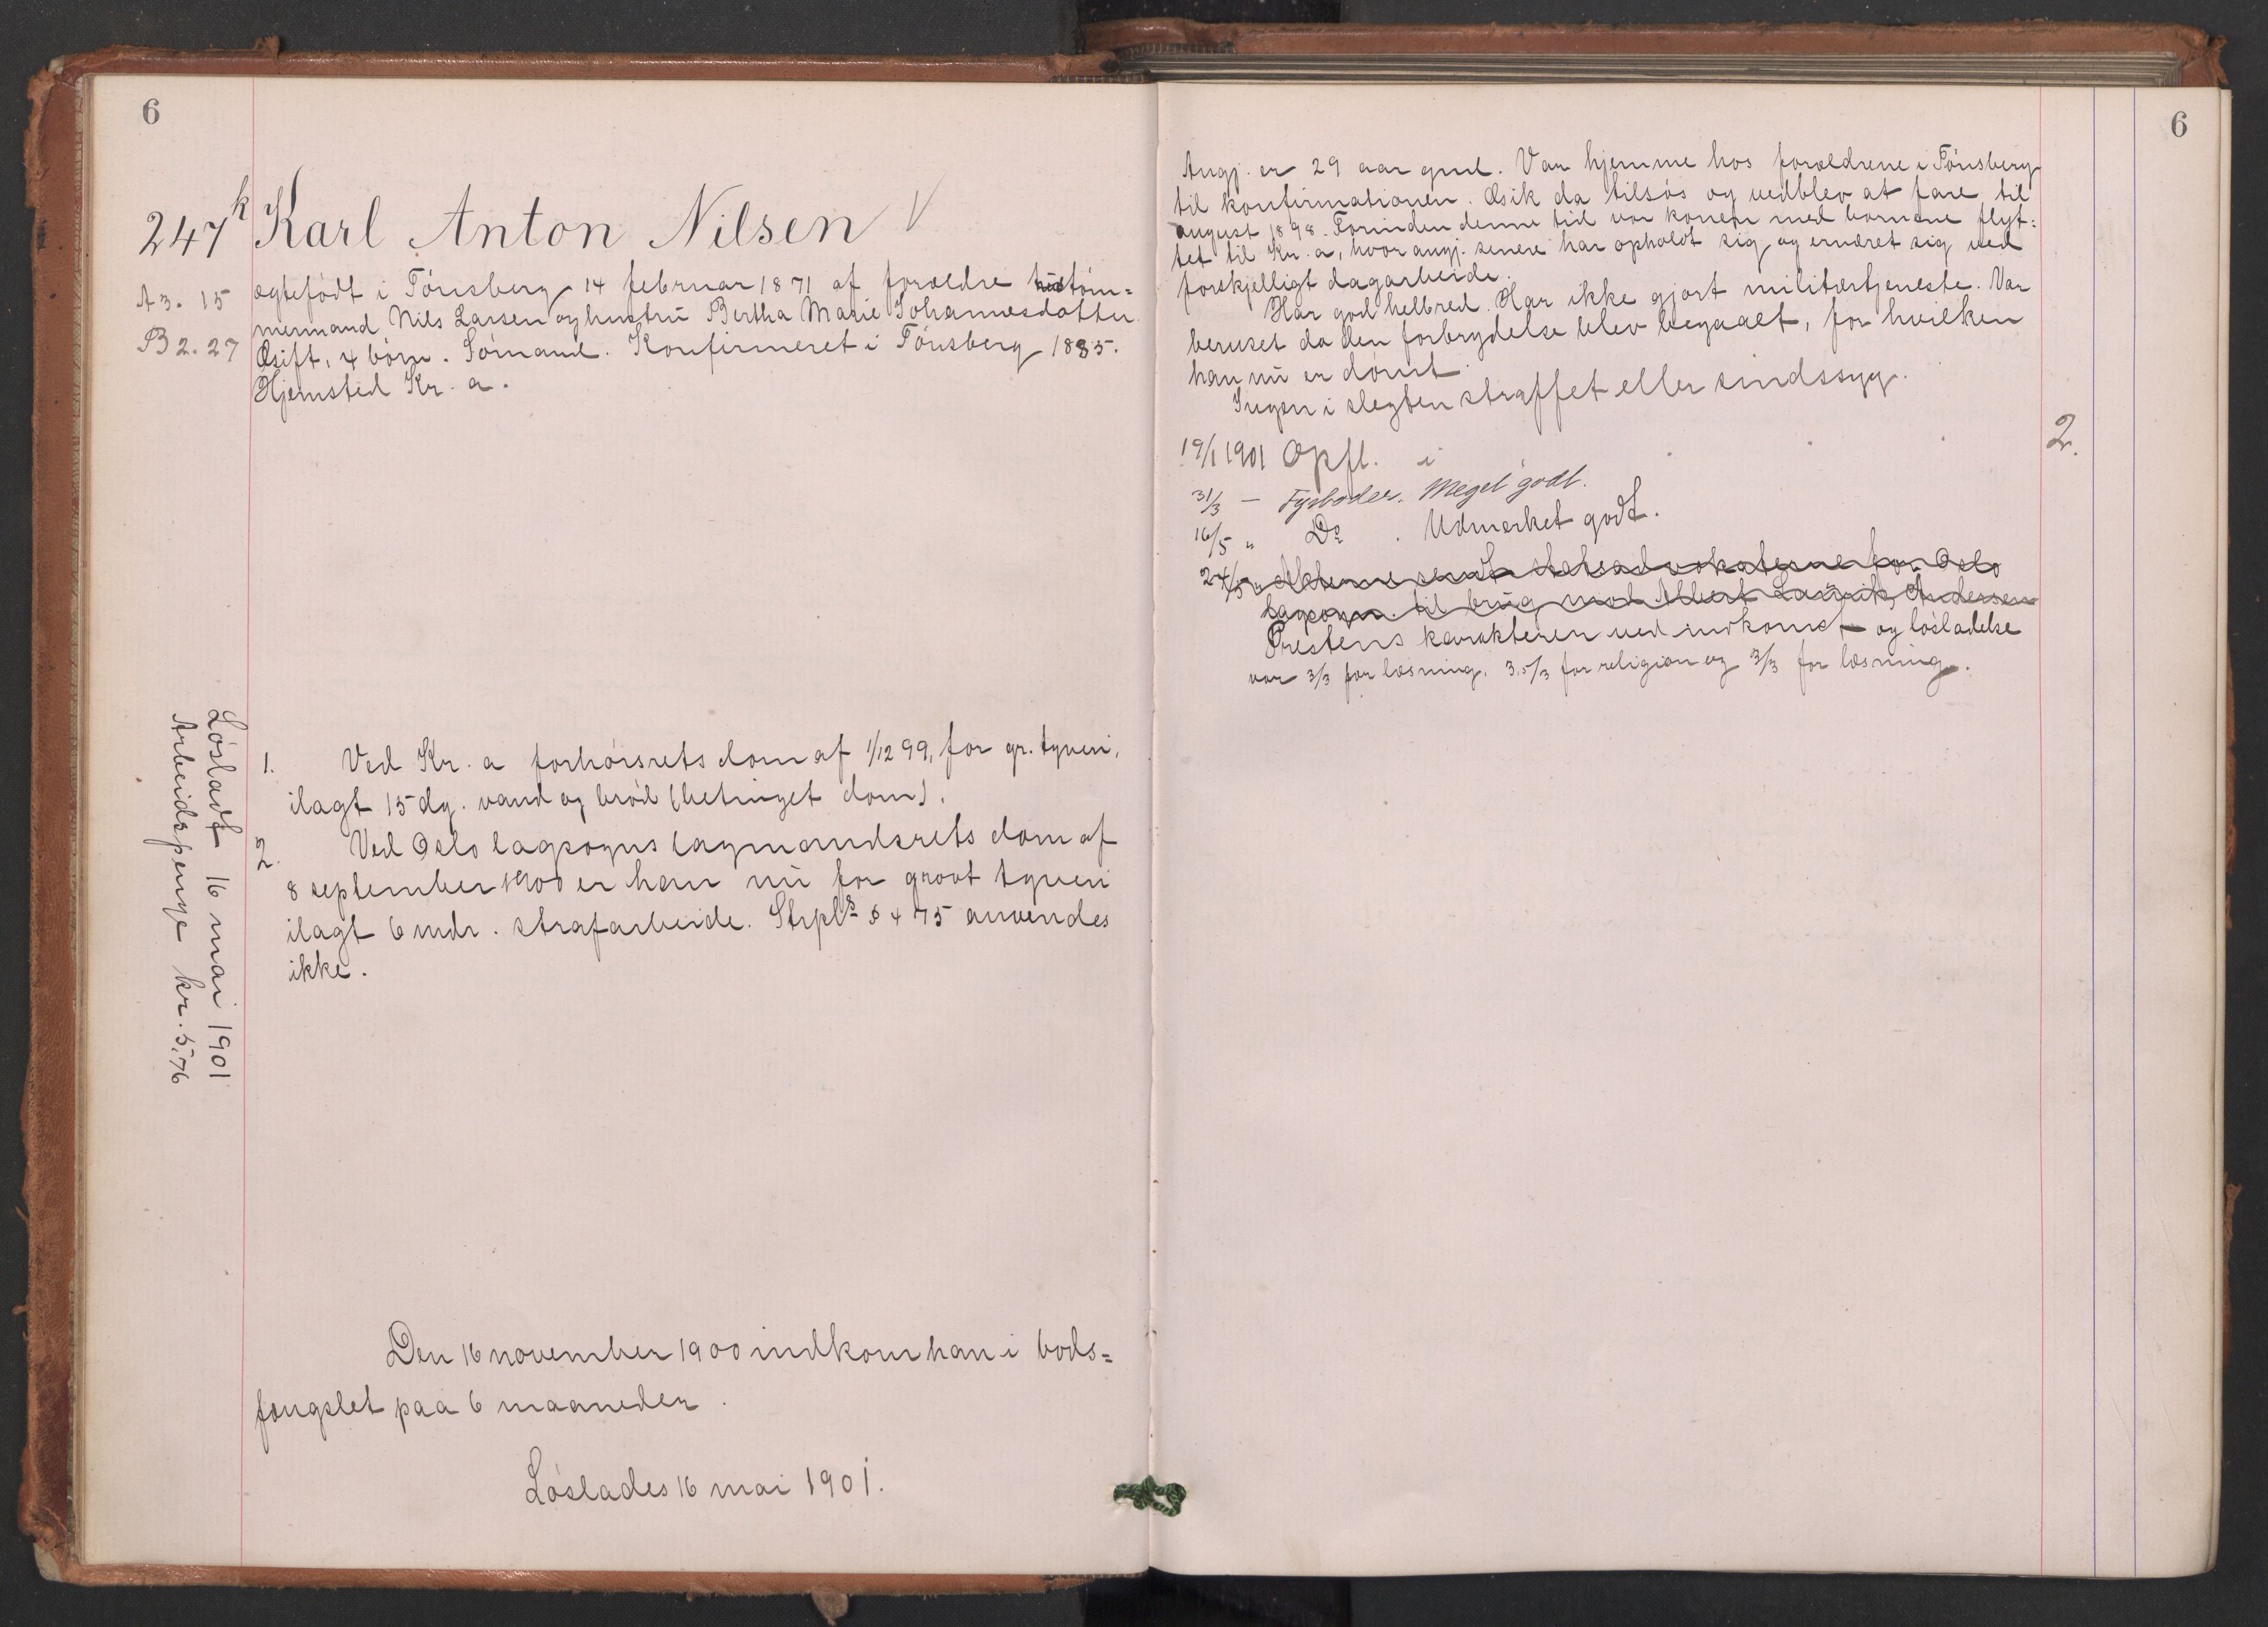 6
247k Karl Anton Nilsen V
A 3. 15
B 2. 27
ægtefødt i Tønsberg 14 februar 1871 af forældre tøm=
mermand Nils Larsen og hustru Bertha Marie Johannesdatter
Gift, 4 børn. Sømand. Konfirmeret i Tønsberg 1885.
Hjemsted Kr.a.
1. Ved Kr.a forhørsrets dom af 1/12 99, for gr. tyveri,
ilagt 15 dg. vand og brød (betinget dom).
2. Ved Oslo lagsogns lagmandsrets dom af
8 september 1900 er han nu for grovt tyveri
ilagt 6 mdr. strafarbeide. Strpls § 475 anvendes
ikke.
Løsladt 16 mai 1901
Arbeidspenge kr. 5,76
Den 16 november 1900 indkom han i bods=
fængslet paa 6 maaneder.
Løslades 16 mai 1901.
6
Angj. er 29 aar gml. Var hjemme hos forældrene i Tønsberg
til konfirmationen. Gik da tilsøs og vedblev at fare til
august 1898. Forinden denne tid var konen med børnene flyt=
tet til Kr.a, hvor angj. senere har opholdt sig og ernæret sig ved
forskjelligt dagarbeide.
Har god helbred. Har ikke gjort militærtjeneste. Var
beruset da den forbrydelse blev begaaet, for hvilken
han nu er dømt.
Ingen i slegten straffet eller sindssyg.
2.
19/1 1901 Opfl. i
31/3 — Fyrbøder. Meget godt.
16/5 " Do. Udmerket godt.
24/5 " Akterne sendt statsadvokaterne for Oslo
lagsogn til brug mod Albert Lauritz Andersen
Prestens karakterer ved indkomst og løsladelse
var 3/3 for læsning, 3,5/3 for religion og 3/3 for læsning.